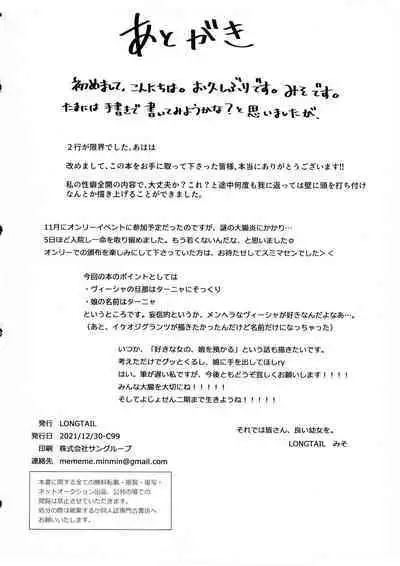 あとがき
初めまして、こんにちは。お久しぶりです。みそです。
たまには手書きで書いてみようかな?と思いましたが、
2行が限界でした。あはは
改めまして、この本をお手に取って下さった皆様、本当にありがとうございます!!
私の性癖全開の内容で、大丈夫か?これ?と途中何度も我に返っては壁に頭を打ち付け
なんとか描き上げることができました。
11月にオンリーイベントに参加予定だったのですが、謎の大腸炎にかかり…
5日ほど入院し一命を取り留めました。もう若くないんだな、と思いました。
オンリーでの頒布を楽しみにして下さっていた方は、お待たせしてスミマセンでした><
今回の本のポイントとしては
・ヴィーシャの旦那はターニャにそっくり
・娘の名前はターニャ
というところです。妄信的というか、メンヘラなヴィーシャが好きなんだよなあ…。
(あと、イケオジグランツが描きたかったんだけど名前だけになっちゃった)
いつか、「好きな女の、娘を預かる」という話も描きたいです。
考えただけでグッとくるし、娘に手を出してほしry
はい。筆が遅い私ですが、今後ともどうぞ宜しくお願いします!!!!
みんな大腸を大切にね!!!!!
そしてよじょせん二期まで生きようね!!!!!
それでは皆さん、良い幼女を。
LONGTAIL みそ
発行 LONGTAIL
発行日 2021/12/30-C99
印刷 株式会社サングループ
連絡先 mememe.minmin@gmail.com
本書に関する全ての無断転載・複製・複写・
ネットオークション出品、公共の場での
閲覧は禁止させていただきます。
処分の際は破棄するか同人誌専門古書店へ
お願いいたします。